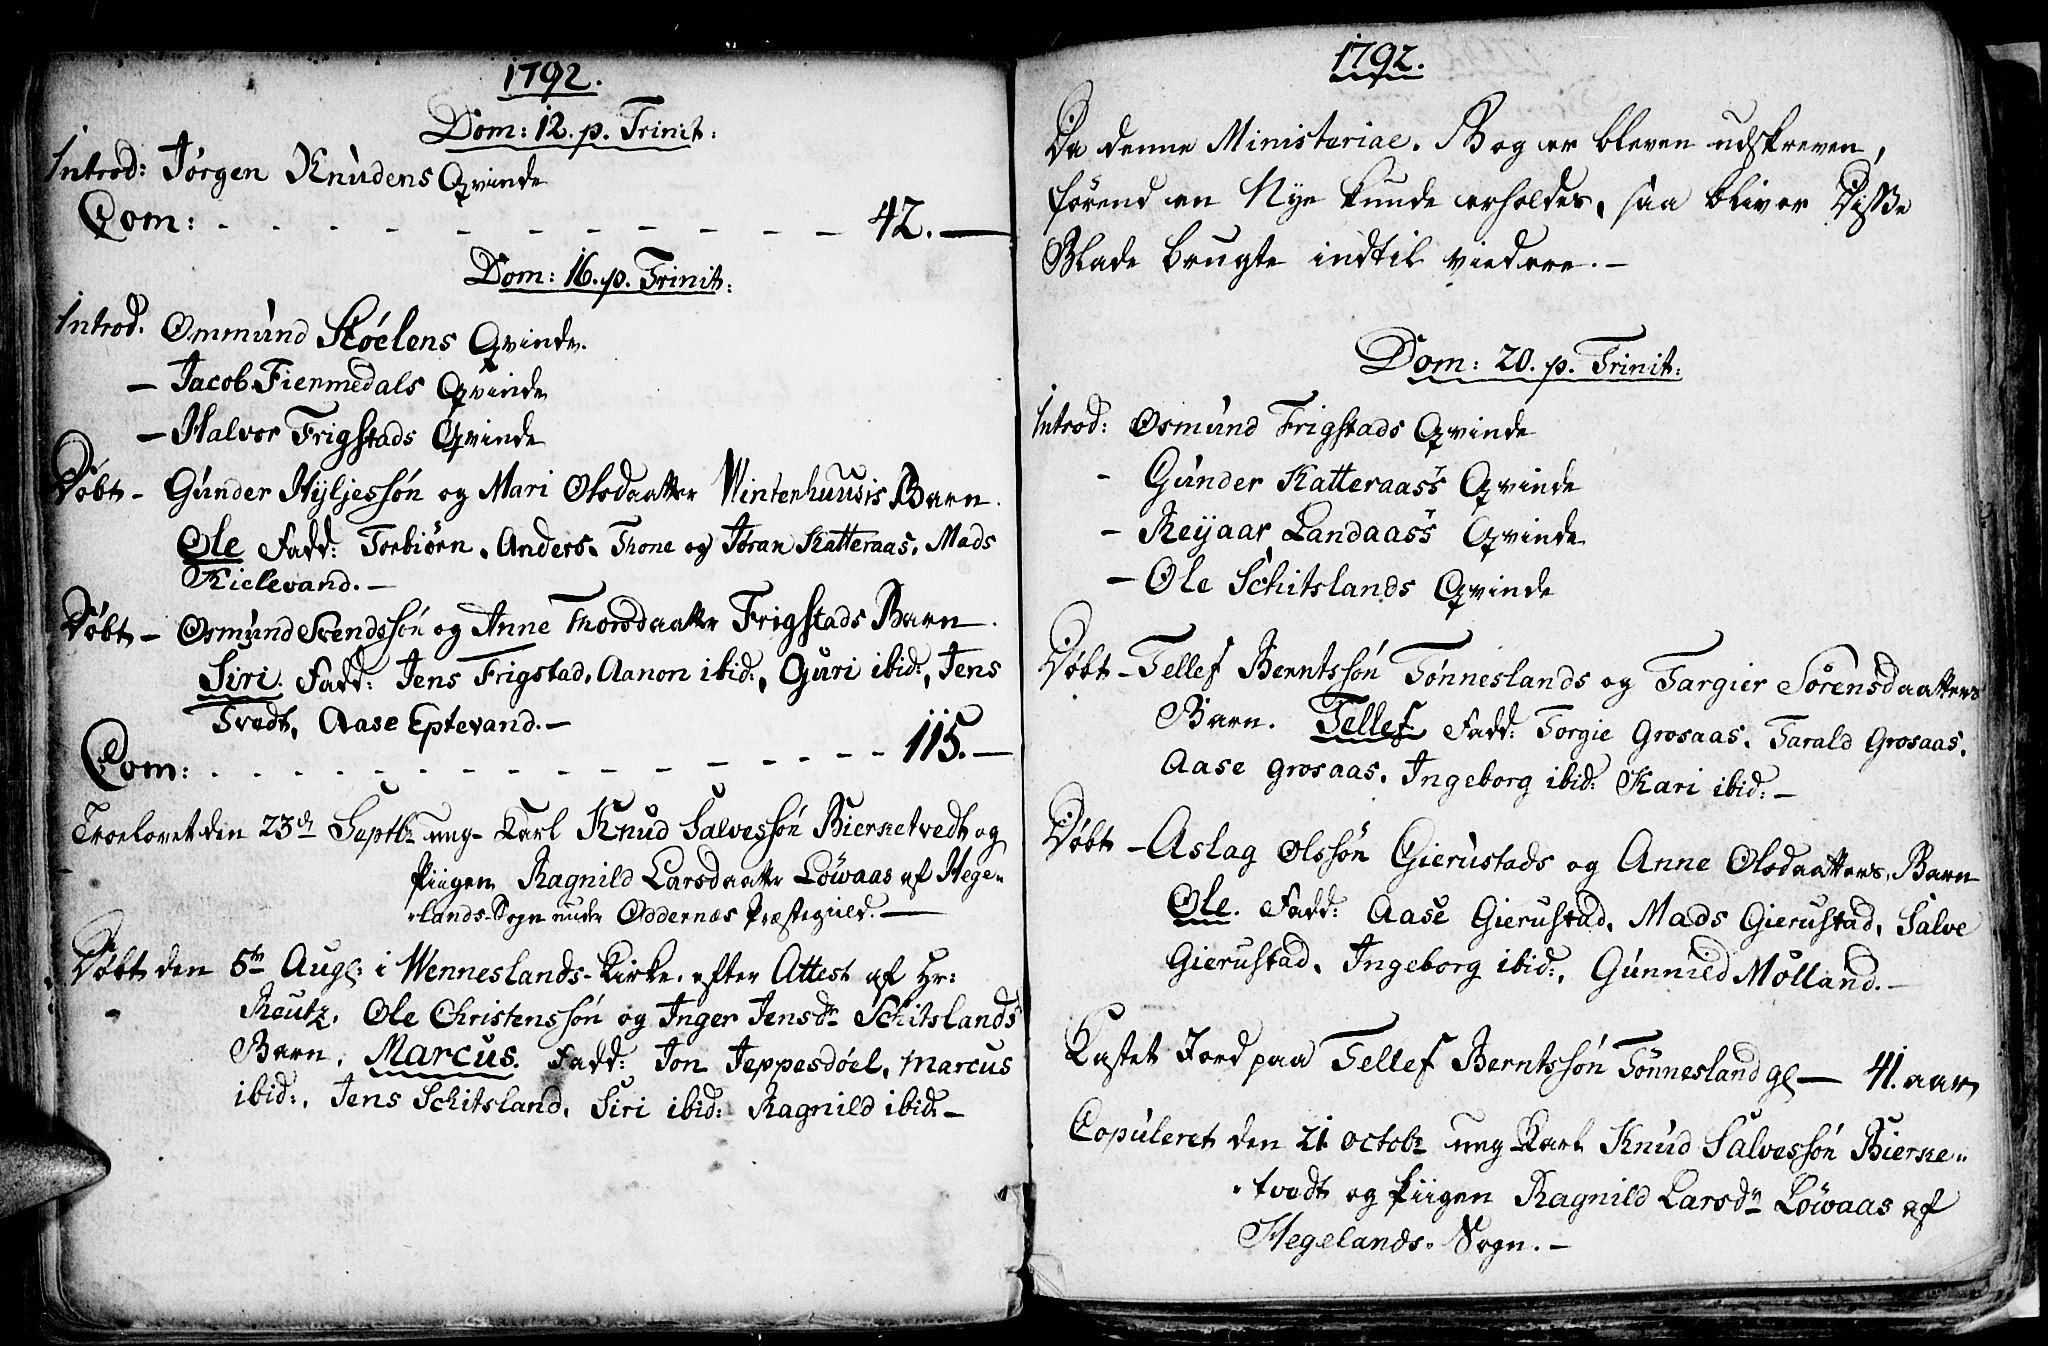 1792.
Dom: 12. p. Trinit:
Introd: Jørgen Knudens Qvinde
Com: - - - - - - - - - - - - 42. —
Dom: 16. p. Trinit:
Introd. Ommund Skøelens Qvinde.
— Jacob Fiermedals Qvinde
— Halvor Frigstads Qvinde
Døbt - Gunder Hyljessøn og Mari Olsdaatter Vinterhuusis Barn.
Ole Fadd: Torbiørn, Anders, Thone og Jøran Katteraas, Mads
Kielevand. —
Døbt - Osmund Svendssøn og Anne Thorsdaatter Frigstads Barn.
Siri. Fadd: Jens Frigstad, Aanon ibid:, Guri ibid:, Jens
Tvedt, Aase Eptevand. —
Com: - - - - - - - - - - - - - - 115. —
Troelovet den 23de Septbr ung Karl Knud Salvessøn Bierketvedt og
Piigen Ragnild Larsdaatter Løwaas af Hege-
lands-Sogn under Oddernæs Præstegield. —
Døbt den 5te Aug: i Wenneslands-Kirke efter Attest af Hr:
Reutz. Ole Christenssøn og Inger Jensdr Schitslands
Barn, Marcus. Fadd: Jon Jeppesdøel, Marcus
ibid:, Jens Schitsland, Siri ibid: Ragnild ibid: —
1792.
Da denne Ministerial-Bog er bleven udskreven,
førend en Nye kunde erholdes, saa bliver Disse
Blade brugte indtil viedere. —
Dom: 20. p. Trinit:
Introd: Osmund Frigstads Qvinde
- Gunder Katteraas's Qvinde
- Reijaar Landaas's Qvinde
- Ole Schitslands Qvinde
Døbt - Tellef Berntssøn Tønneslands og Targier Sørensdaatters
Barn. Tellef. Fadd: Torgie Grosaas, Tarald Grosaas,
Aase Grosaas, Ingeborg ibid: Kari ibid: —
Døbt - Aslag Olssøn Gierustads og Anne Olsdaatters, Barn
Ole. Fadd: Aase Gierustad, Mads Gierustad, Salve
Gierustad, Ingeborg ibid:, Gunnild Molland. —
Kastet Jord paa Tellef Berntssøn Tønnesland gl — 41. aar
Copuleret den 21 octobr ung Karl Knud Salvessøn Bierke-
tvedt og Piigen Ragnild Larsdr Løwaas af
Hegelands-Sogn. —